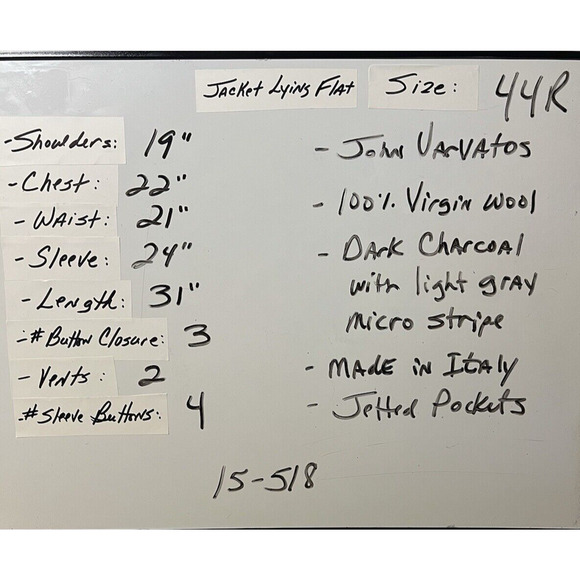 JACKET LYING FLAT
SIZE: 44R
- Shoulders: 19"
- Chest: 22"
- WAIST: 21"
- Sleeve: 24"
- Length: 31"
- # Button Closure: 3
- Vents: 2
- # Sleeve Buttons: 4
- JOHN VARVATOS
- 100% Virgin Wool
- DARK CHARCOAL
with light gray
micro stripe
- MADE IN ITALY
- Jetted Pockets
15-518